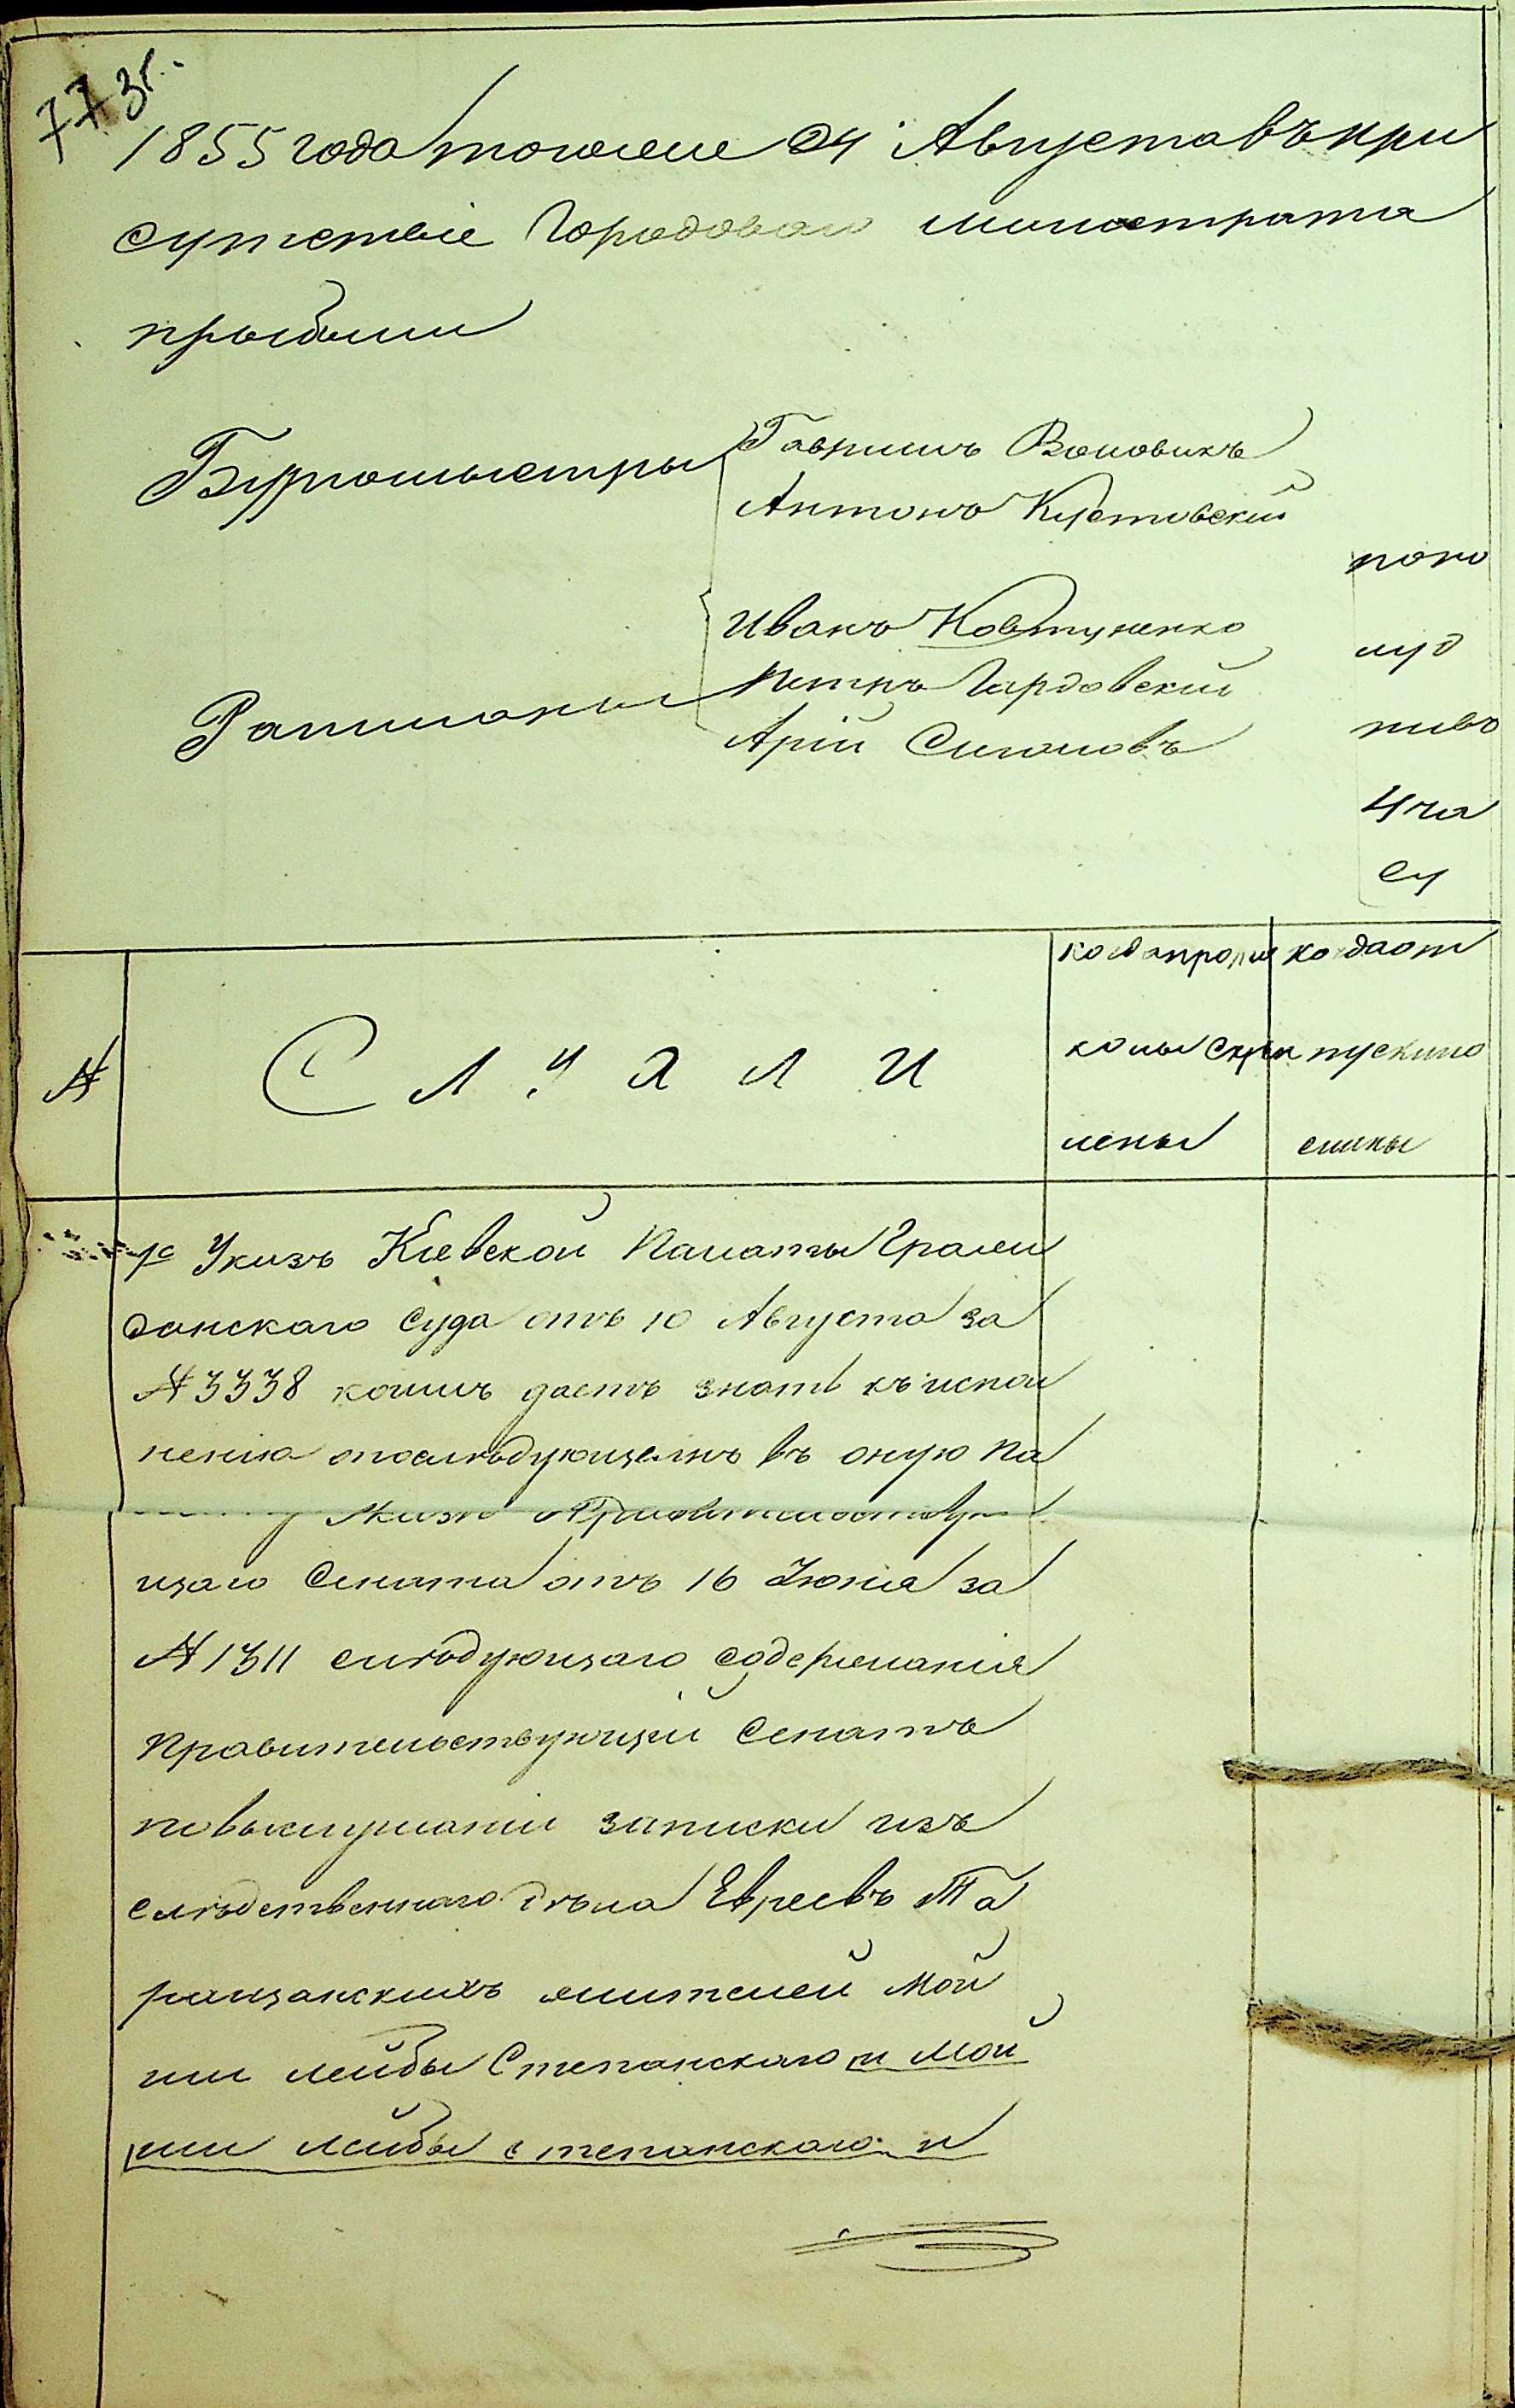 773
1855 года тогоже 24 Августа въ при
сутствіе Городоваго магистрата
прыбыли
Бургомыстры
Гаврилъ Воловикъ
Антонъ Кустовскій
Ратманы
Иванъ Ковтуненко
Петръ Гардовскій
Арій Сигаловъ
попо
луд
ни въ
4 ча
су
№
С л у ш а л и
когда прото
колы скреп
лены
когда от
пускию
1е Указъ Кіевской Палаты Граж
данскаго Суда отъ 10 Августа за
№ 3338 коимъ даетъ знать къ испол
ненію опослѣдующемъ въ оную Па
Указѣ Правительствую
щаго Сената отъ 16 Іюня за
№ 1311 слѣдующаго содержанія
Правительствующій Сенатъ
по выслушаніи записки изъ
слѣдственнаго дѣла Евреевъ Та
ращанскихъ жителей Мой
ши Лейбы Степанскаго и Мой
ши Лейбы Степанскаго и